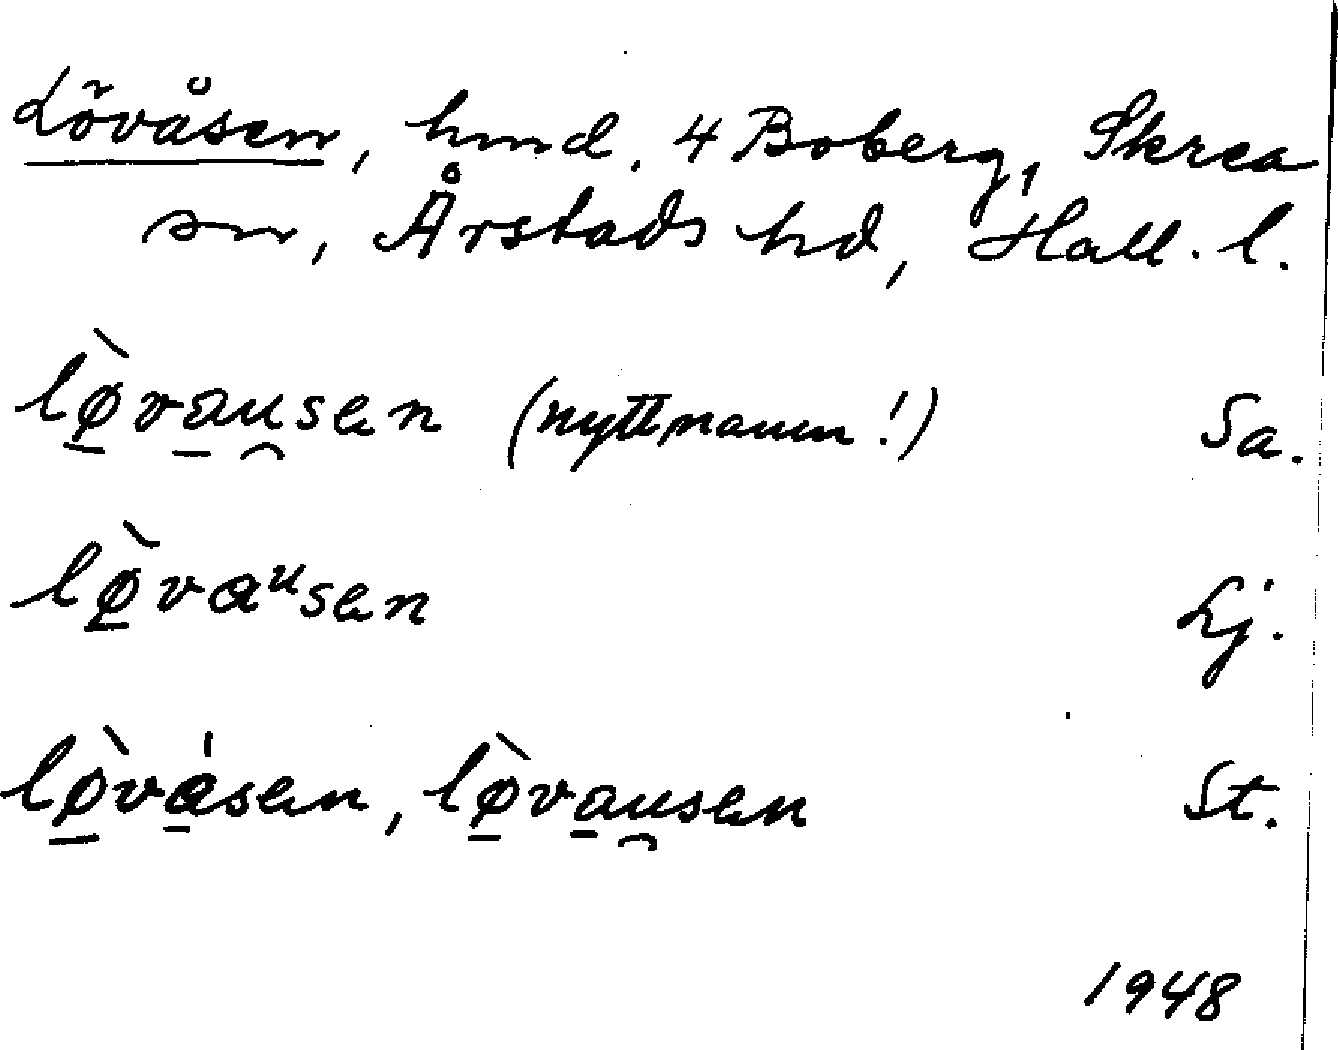 Lövåsen, hmd. 4 Boberg, Skrea
sn, Årstads hd, Hall. l.
lø̱̀va̱u̯sen (nyttnamn!) Sa.
lø̱̀vaᵘsen Lj.
lø̱̀vá̱sen, lø̱̀va̱u̯sen St.
1948